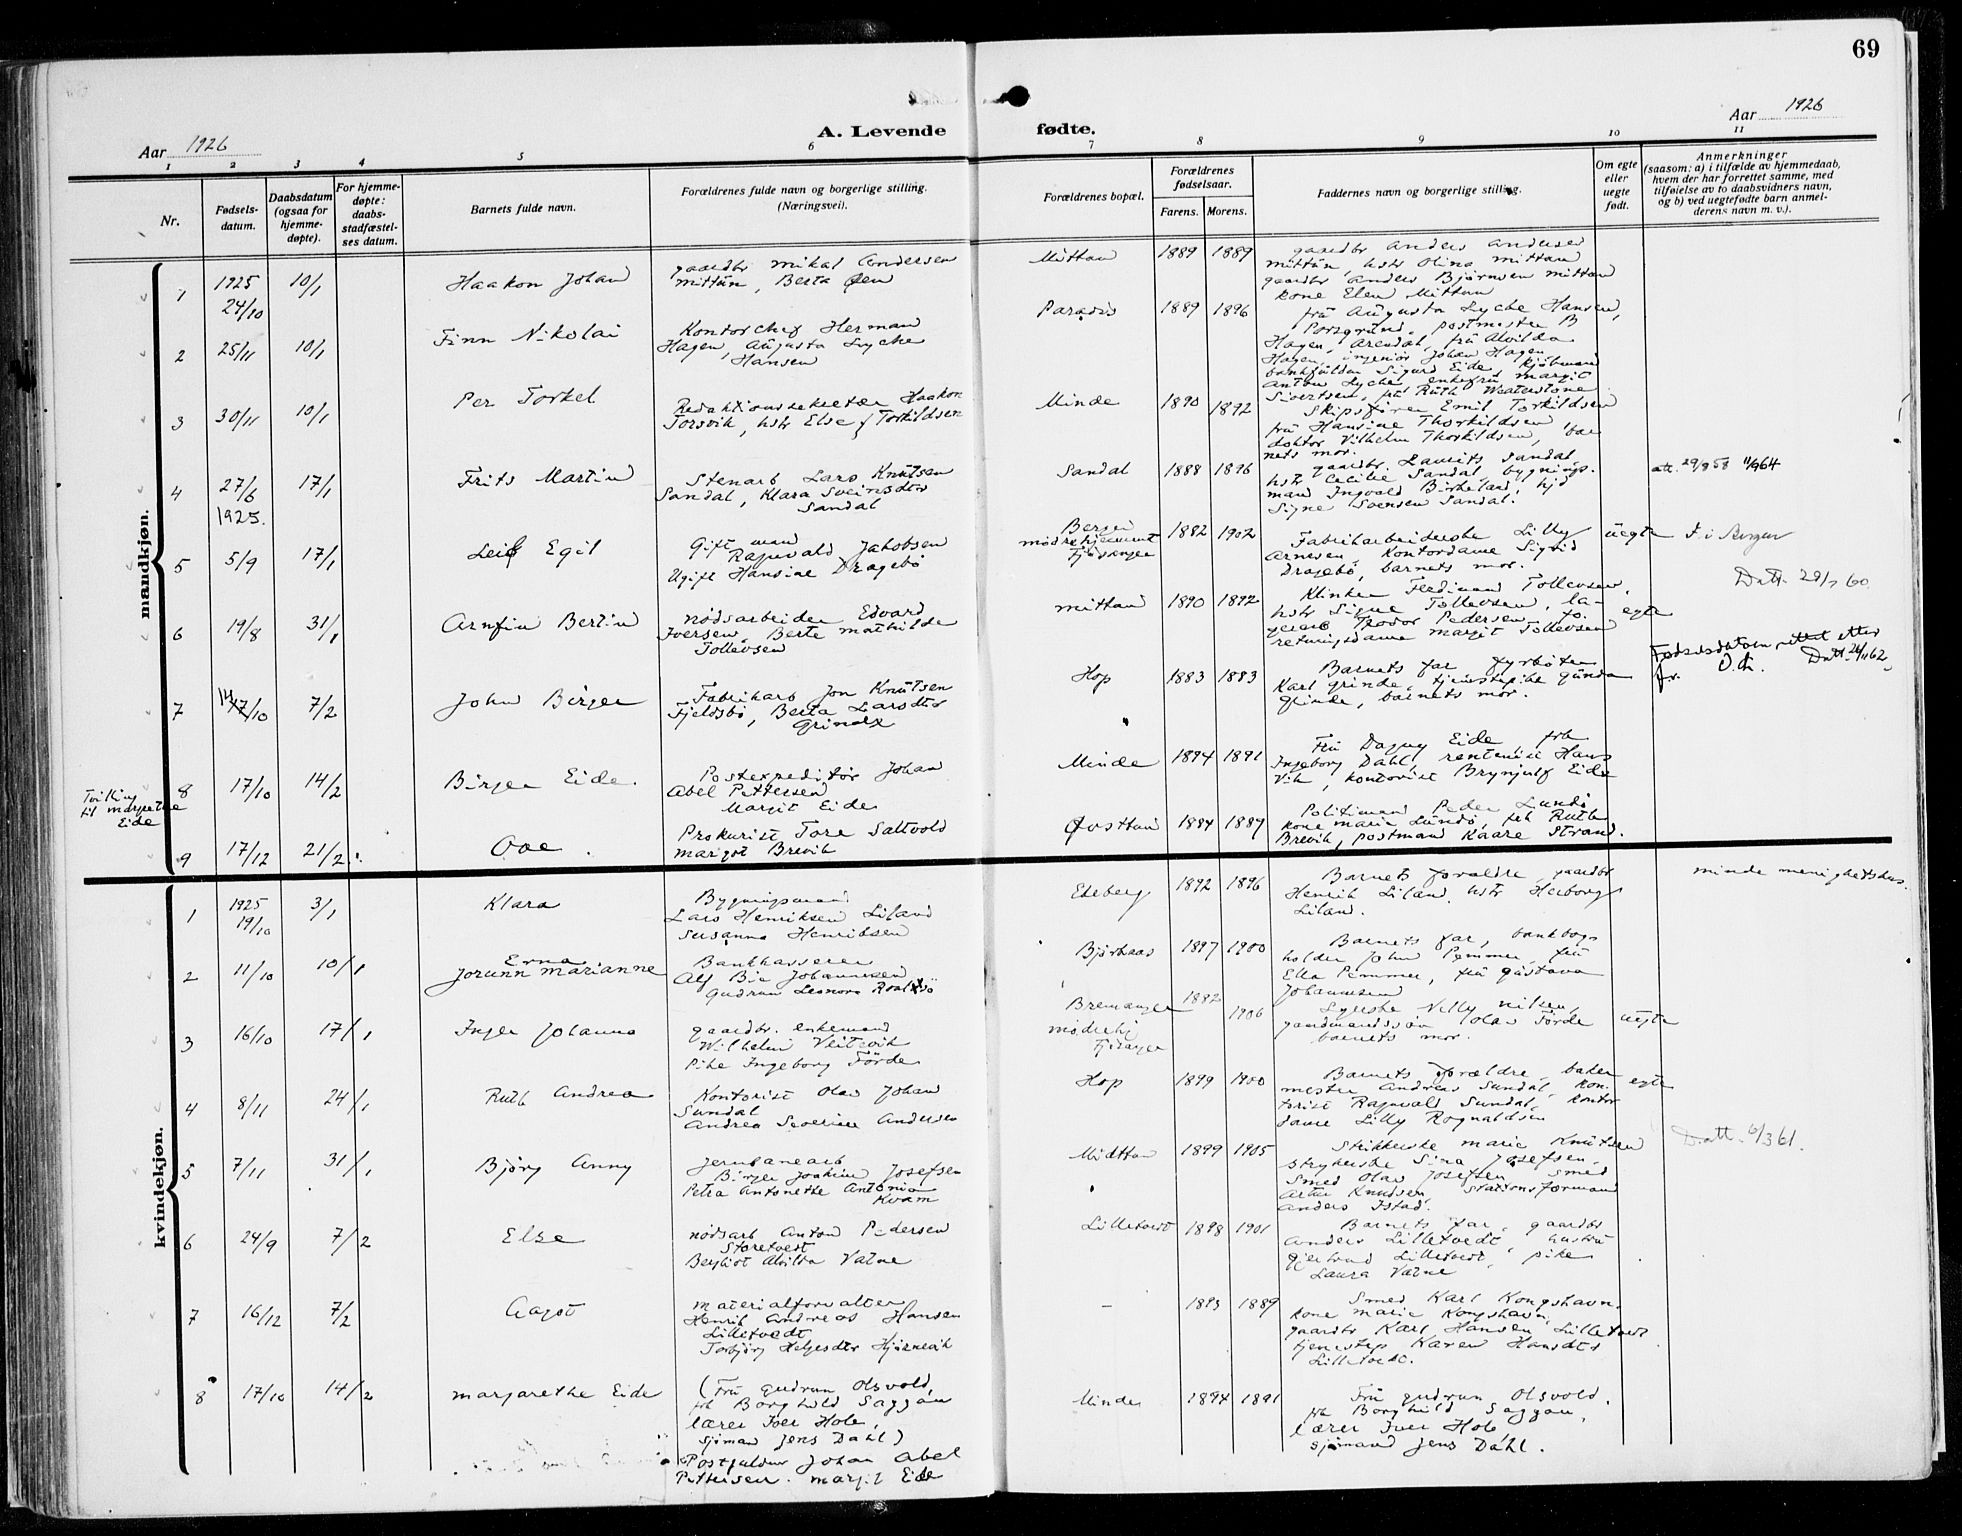 69
A. Levende fødte.
Aar 1926
Aar 1926
1 2 3 4 5 6 7 8 9 10 11
Nr.
Fødsels-
datum.
Daabsdatum
(ogsaa for
hjemme-
døpte).
For hjemme-
døpte:
daabs-
stadfæstel-
ses datum.
Barnets fulde navn.
Forældrenes fulde navn og borgerlige stilling.
(Næringsvei).
Forældrenes bopæl.
Forældrenes
fødselsaar.
Farens. Morens.
Faddernes navn og borgerlige stilling.
Om egte
eller
uegte
født.
Anmerkninger
(saasom: a) i tilfælde av hjemmedaab,
hvem der har forrettet samme, med
tilføielse av to daabsvidners navn,
og b) ved uegtefødte barn anmel-
derens navn m. v.).
mandkjøn.
1 1925 24/10 10/1 Haakon Johan
gaardbr Mikal Andersen
Mittun, Berta Øen
Mittun 1889 1889
gaardbr Anders Andersen
Mittun, hstr Olina Mittun
gaardbr Anders Bjørnsen Mittun
kone Elen Mittun
2 25/11 10/1 Finn Nikolai
Kontorchef Herman
Hagen, Augusta Lyche
Hansen
Paradis 1889 1896
frü Augusta Lyche Hansen,
Porsgrund, postmester B
Hagen, Arendal, frü Alvilda
Hagen, ingeniør Johan Hagen
bankfuldm Sigurd Eide, kjøbmand
Anton Lyche, enkefrü Margit
Sivertsen, frü Ruth Waaterstone
3 30/11 10/1 Per Torkel
Redaktionssekretær Haakon
Torsvik, hstr Else f Torkildsen
Minde 1890 1892
Skipsfører Emil Torkildsen
frü Hansine Thorkildsen
doktor Vilhelm Thorkildsen, bar
nets mor.
4 27/6 1925. 17/1 Frits Martin
Stenarb Lars Knütsen
Sandal, Klara Sveinsdtr
Sandal
Sandal 1888 1896
gaardbr. Laurits Sandal
hstr Cecilie Sandal, bygnings-
mand Ingvald Birkeland, hjd
Signe Svensen Sandal.
att. 29/8 58 11/9 64
5 5/9 17/1 Leif Egil
Gift man
Ragnvald Jakobsen
Ugift Hansine Dragebø
Bergen
mødrehjemmet
Fjøsanger 1882 1902
Fabrikarbeiderske Lilly
Arnesen, Kontordame Sigrid
Dragebø, barnets mor.
üegte F. i Bergen
Datt. 29/1 60
6 19/8 31/1 Arnfin Bertin
nødsarbeider Edvard
Iversen, Berte Mathilde
Tollevsen
Mittun 1890 1892
Klinker Ferdinand Tollevsen,
hstr Signe Tollevsen, la-
gerarb Teodor Pedersen, to.
retningsdame Margit Tollevsen
egte
7 14/10 7/2 John Birger
Fabrikarb Jon Knütsen
Fjeldsbø, Berta Larsdtr
Grinde
Hop 1883 1883
Barnets far, fyrbøter
Karl Grinde, tjenestepike Günda
Grinde, barnets mor.
Fødselsdatoen rettet etter
Datt. 26/11 62
8 17/10 14/2 Birger Eide.
Tvilling
til Margrethe
Eide
Postexpeditør Johan
Abel Pettersen
Margit Eide
Minde 1894 1891
Frü Dagny Eide, frk
Ingeborg Dahl, rentenist Hans
Vik, kontorist Brynjulf Eide
9 17/12 21/2 Ove.
Prokurist Tore Sattvold
Margot Brevik
Øvsttun 1884 1887
Politimand Peder Lundø
kone Marie Lundø, frk Ruth
Brevik, postmand Kaare Strand.
kvindekjøn.
1 1925 19/10 3/1 Klara
Bygningsmand
Lars Henriksen Liland
Susanna Henriksen
Ekeberg 1892 1896
Barnets forældre, gaardbr
Henrik Liland, hstr Herborg
Liland.
Minde menighetshus.
2 11/10 10/1 Erna
Jorunn Marianne
Bankkasserer
Alf Bie Johannesen
Gudrun Leonora
Bjørkaas 1897 1900
Barnets far, bankbog-
holder John Pemmer, frü
Ella Pemmer, frü Güstava
Johannesen
3 16/10 17/1 Inger Johanna
gaardbr. enkemand
Wilhelm Veitevik
Pike Ingeborg Førde
Bremanger
mødrehj
Fjøsanger 1882 1906
Syerske Nelly Nilsen,
gaardmandssøn Olav Førde
barnets mor.
üegte
4 8/11 24/1 Ruth Andrea
Kontorist Olav Johan
Sundal
Andrea Severine Andersen
Hop 1899 1900
Barnets forældre, baker
mester Andreas Sundal, kon-
torist Ragnvald Sundal, kontor
dame Lilly Rognaldsen
egte
5 7/11 31/1 Bjørg Anny
Jernbanearb
Birger Joakim Josefsen
Petra Antonette Antonia
Kvam
Midttun 1899 1905
Strikkerske Marie Knütsen
strykerske Sina Josefsen,
Smed Olav Josefsen, Smed
Artur Knudsen, Stationsformand
Anders Istad.
Datt. 6/3 61.
6 24/9 7/2 Else
nødsarb Anton Pedersen
Storetvedt
Bergliot Alvilda Vatne
Lilletvedt 1898 1901
Barnets far, gaardbr
Anders Lilletvedt, hustrü
Gjertrud Lilletvedt, pike
Laura Vatne
7 16/12 7/2 Aagot
Materialforvalter
Henrik Andreas Hansen
Lilletvedt
Torbjørg Helgesdtr Hjørnevik
— 1893 1889
Smed Karl Kongshavn.
kone Marie Kongshavn,
gaardbr Karl Hansen Lilletvedt
tjenestep Karen Hansdtr
Lilletvedt.
8 17/10 14/2 Margarethe Eide
(Frü Gudrun Olsvold,
frk Borghild Saggau
lærer Iver Hole,
sjømand Jens Dahl)
Postfuldm Johan Abel
Pettersen. Margit Eide
Minde 1894 1891
Frü Gudrun Olsvold.
frk Borghild Saggau,
lærer Iver Hole
sjømand Jens Dahl.